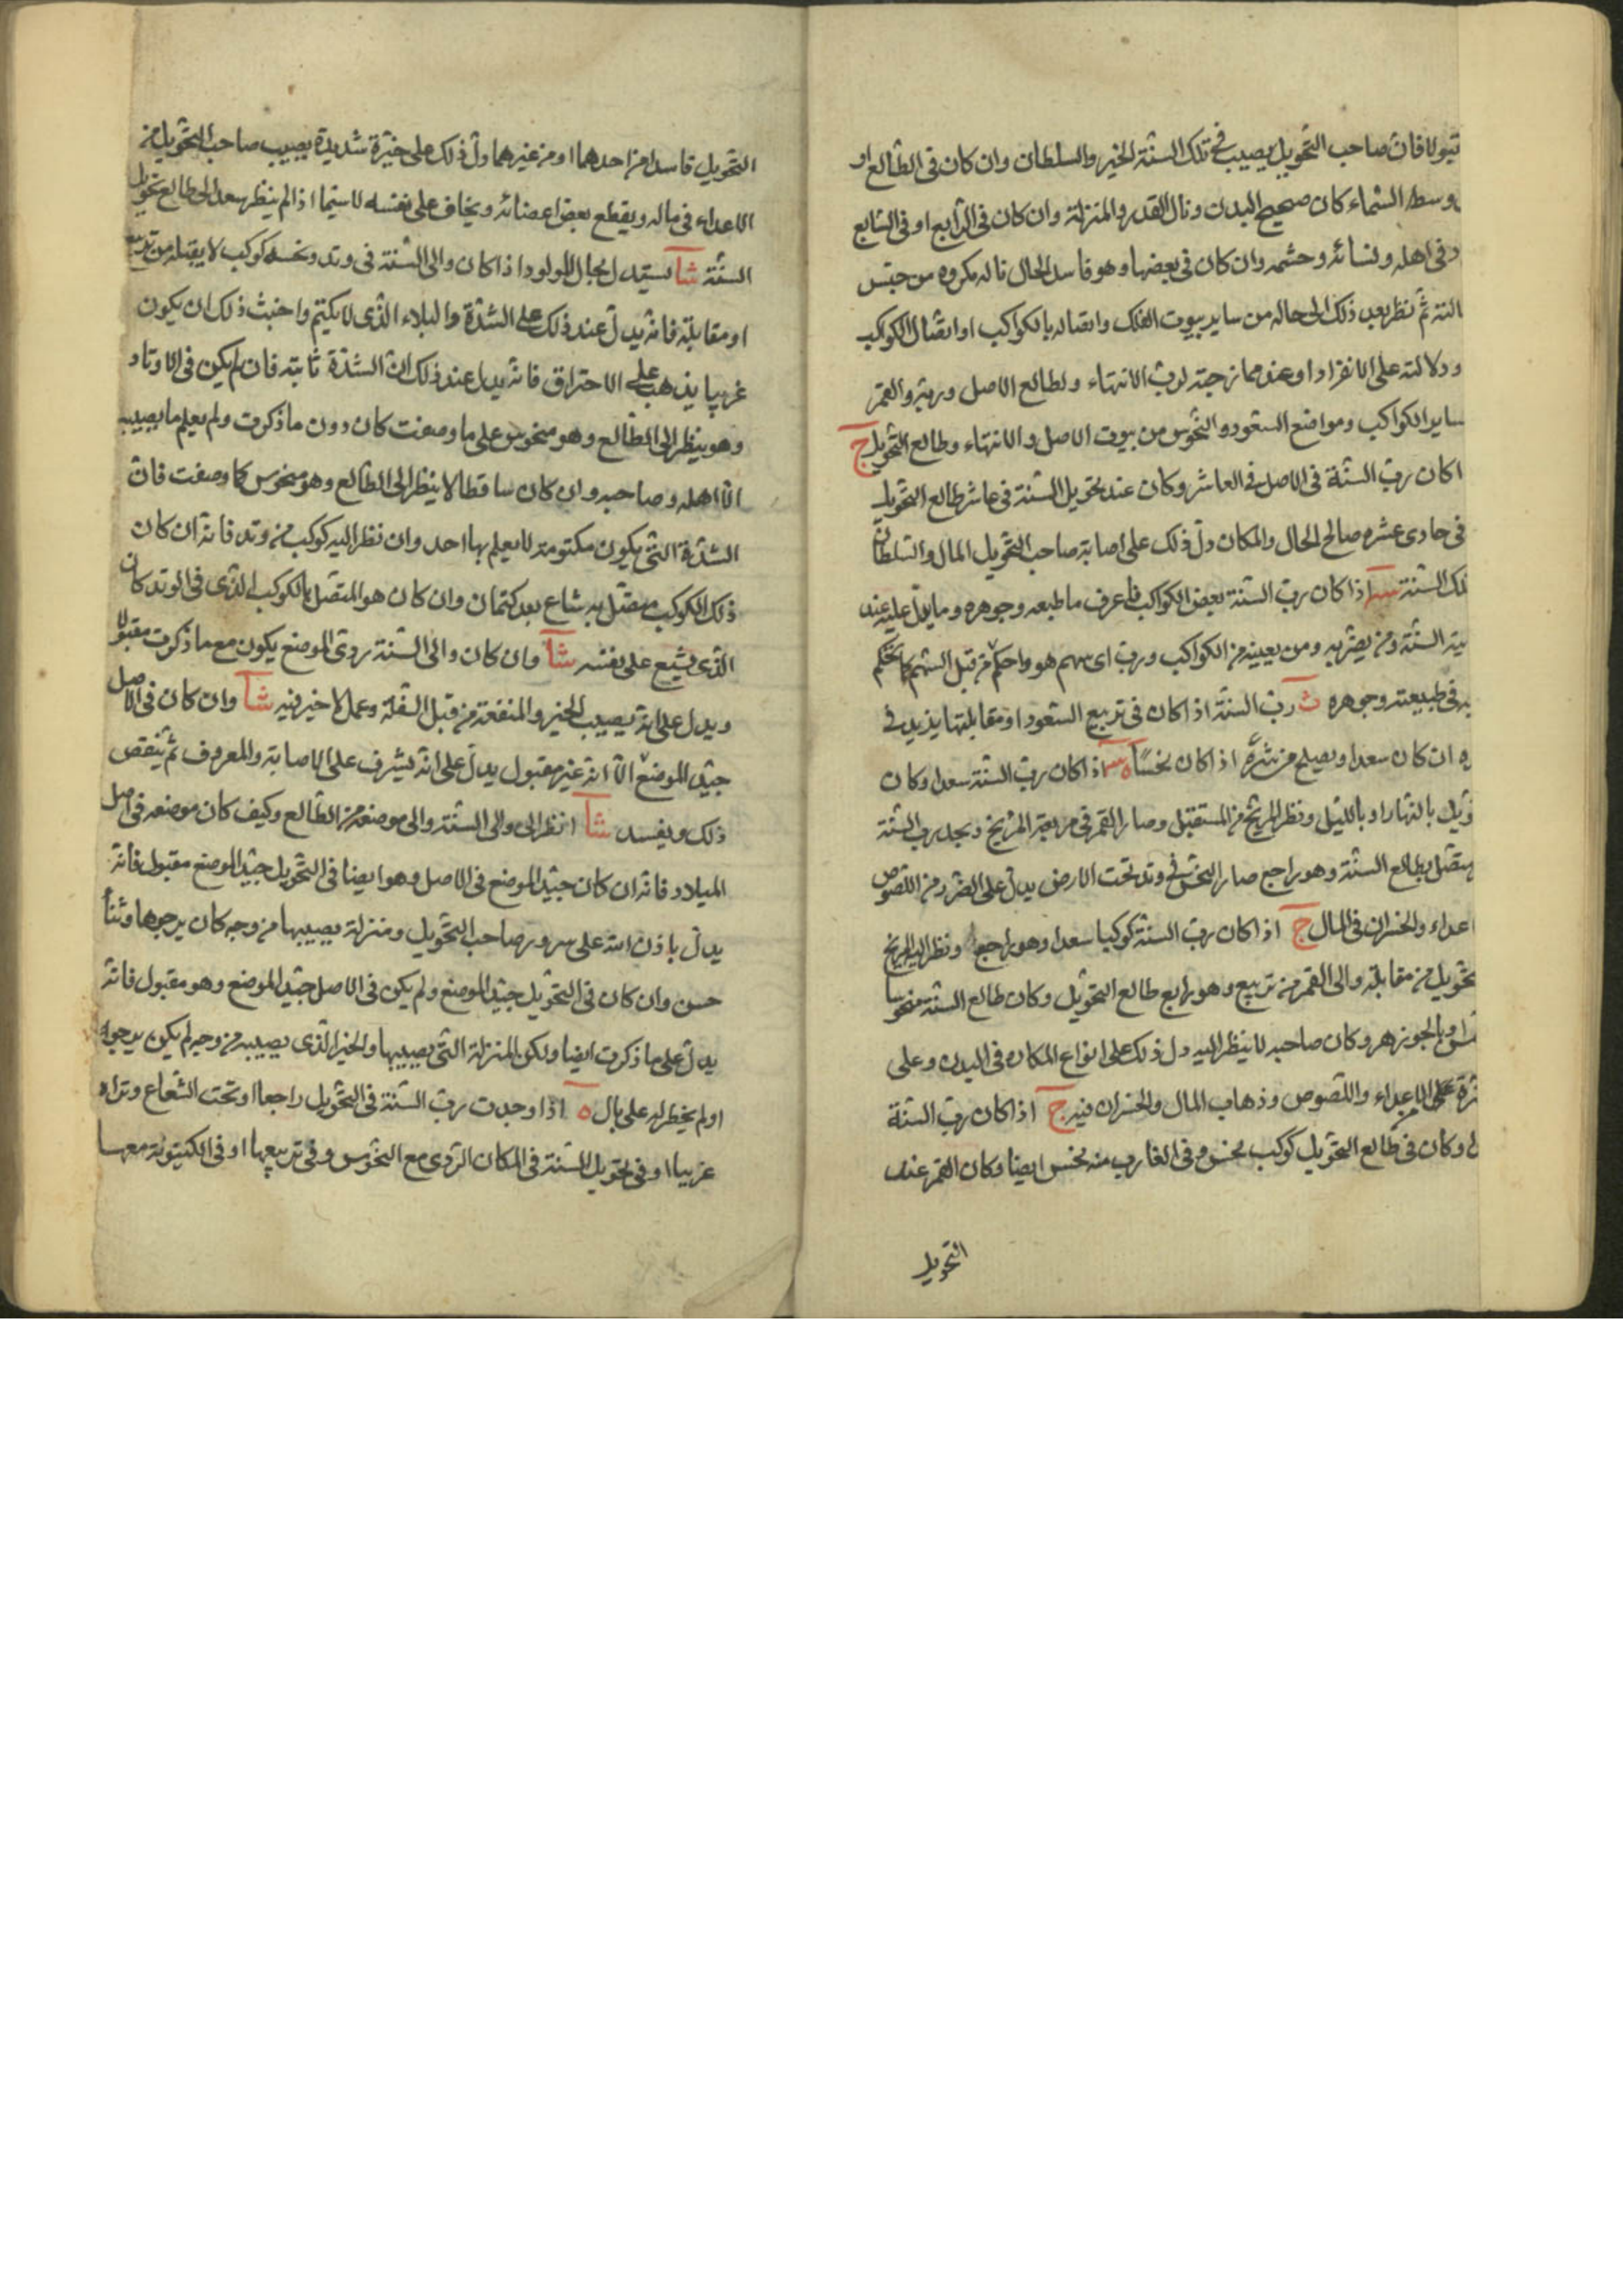 فان صاحب التحويل يصيب في تلك السنة الخير والسلطان وان كان في الطالع او
وسط السماء كان صحيح البدن ونال القدر والمنزلة وان كان في الرابع او في السابع
في اهله ونسائه وحشمه وان كان في بعضها وهو فاسد الحال ناله مكروه من جنس
ثم نظر بعد ذلك الى حاله من ساير بيوت الفلك واتصاله بالكواكب او اتصال الكواكب
ودلالته على الانفراد او عند ممازجته لرب الانتهاء ولطالع الاصل وربه والقمر
ساير الكواكب ومواضع السعود والنحوس من بيوت الاصل والانتهاء وطالع التحويل ج
اكان رب السنة في الاصل في العاشر وكان عند تحويل السنة في عاشر طالع التحويل
في حادى عشره صالح الحال والمكان دل ذلك على اصابة صاحب التحويل المال والسلطان
تلك السنة اذا كان رب السنة بعض الكواكب فاعرف ما طبعه وجوهره وما يدل عليه عند
السنة ومن يضر به ومن يعينه من الكواكب ورب اى سهم هو واحكم من قبل السهم كما تحكم
به في طبيعته وجوهره رب السنة اذا كان في تربيع السعود او مقابلتها يزيد في
ان كان سعدا ويصلح من شره اذا كان نحسا اذا كان رب السنة سعدا وكان
بالنهار او بالليل ونظر المريخ من المستقبل وصار القمر في مربعة المريخ رب السنة
متصل بطالع السنة وهو راجع صار النحس في وتد تحت الارض يدل على الضرر من اللصوص
اعداء والخسران في المال ج اذا كان رب السنة كوكبا سعدا وهو راجع ونظر اليه المريخ
تحويل من مقابلة والى القمر من تربيع وهو رابع طالع التحويل وكان طالع السنة منحوسا
او بالجوزهر وكان صاحبه لا ينظر اليه دل ذلك على انواع المكاره في البدن وعلى
الاعداء واللصوص وذهاب المال والخسران فيه ج اذا كان رب السنة
وكان في طالع التحويل كوكب نحس وفي الغارب منه نحس ايضا وكان القمر عند
التحويل
التحويل فاسدا من احدهما او من غيرهما دل ذلك على شديدة يصيب صاحب التحويل من
الاعداء في ماله ويقطع بعض اعضائه ويخاف على نفسه لا سيما اذا لم ينظر سعد الى طالع تحويل
السنة شآ يستدل بحال المولود اذا كان والى السنة في وتد ونحسه كوكب لا يقبله من تربيع
او مقابلة فانه يدل عند ذلك على الشدة والبلاء الذى لا يكتم واخبث ذلك ان يكون
غريبا يذهب على الاحتراق فانه يدل عند ذلك ان الشدة ثابتة فان لم يكن في الاوتاد
وهو ينظر الى الطالع وهو منحوس على ما وصفت كان دون ما ذكرت ولم يعلم ما يصيبه
الا اهله وصاحبه وان كان ساقطا لا ينظر الى الطالع وهو منحوس كما وصفت فان
الشدة التى يكون مكتومة لا يعلم بها احد وان نظر اليه كوكب من وتد فانه ان كان
ذلك الكوكب متصل به شاع بعد كتمان وان كان هو المتصل بالكوكب الذى في الوتد كان
الذى يشيع على نفسه شآ وان كان والى السنة ردى الموضع يكون مع ما ذكرت مقبولا
ويدل على انه يصيب الخير والمنفعة من قبل السفلة وعمل لا خير فيه شآ وان كان في الاصل
جيد الموضع الا انه غير مقبول يدل على انه يشرف على الاصابة والمعروف ثم ينقص
ذلك ويفسد شآ انظر الى والى السنة والى موضعه من الطالع وكيف كان موضعه في اصل
الميلاد فانه ان كان جيد الموضع في الاصل وهو ايضا في التحويل جيد الموضع مقبول فانه
يدل باذن الله على سرور صاحب التحويل ومنزلة يصيبها من وجه كان يرجوها وثناء
حسن وان كان في التحويل جيد الموضع ولم يكن في الاصل جيد الموضع وهو مقبول فانه
يدل على ما ذكرت ايضا ولكن المنزلة التى يصيبها والخير الذى يصيبه من وجه لم يكن يرجوه
او لم يخطر له على بال ه اذا وجدت رب السنة في التحويل راجعا او تحت الشعاع وتراه
غريبا او في تحويل السنة في المكان الردى مع النحوس وفي تربيعها او في الكينونة معها